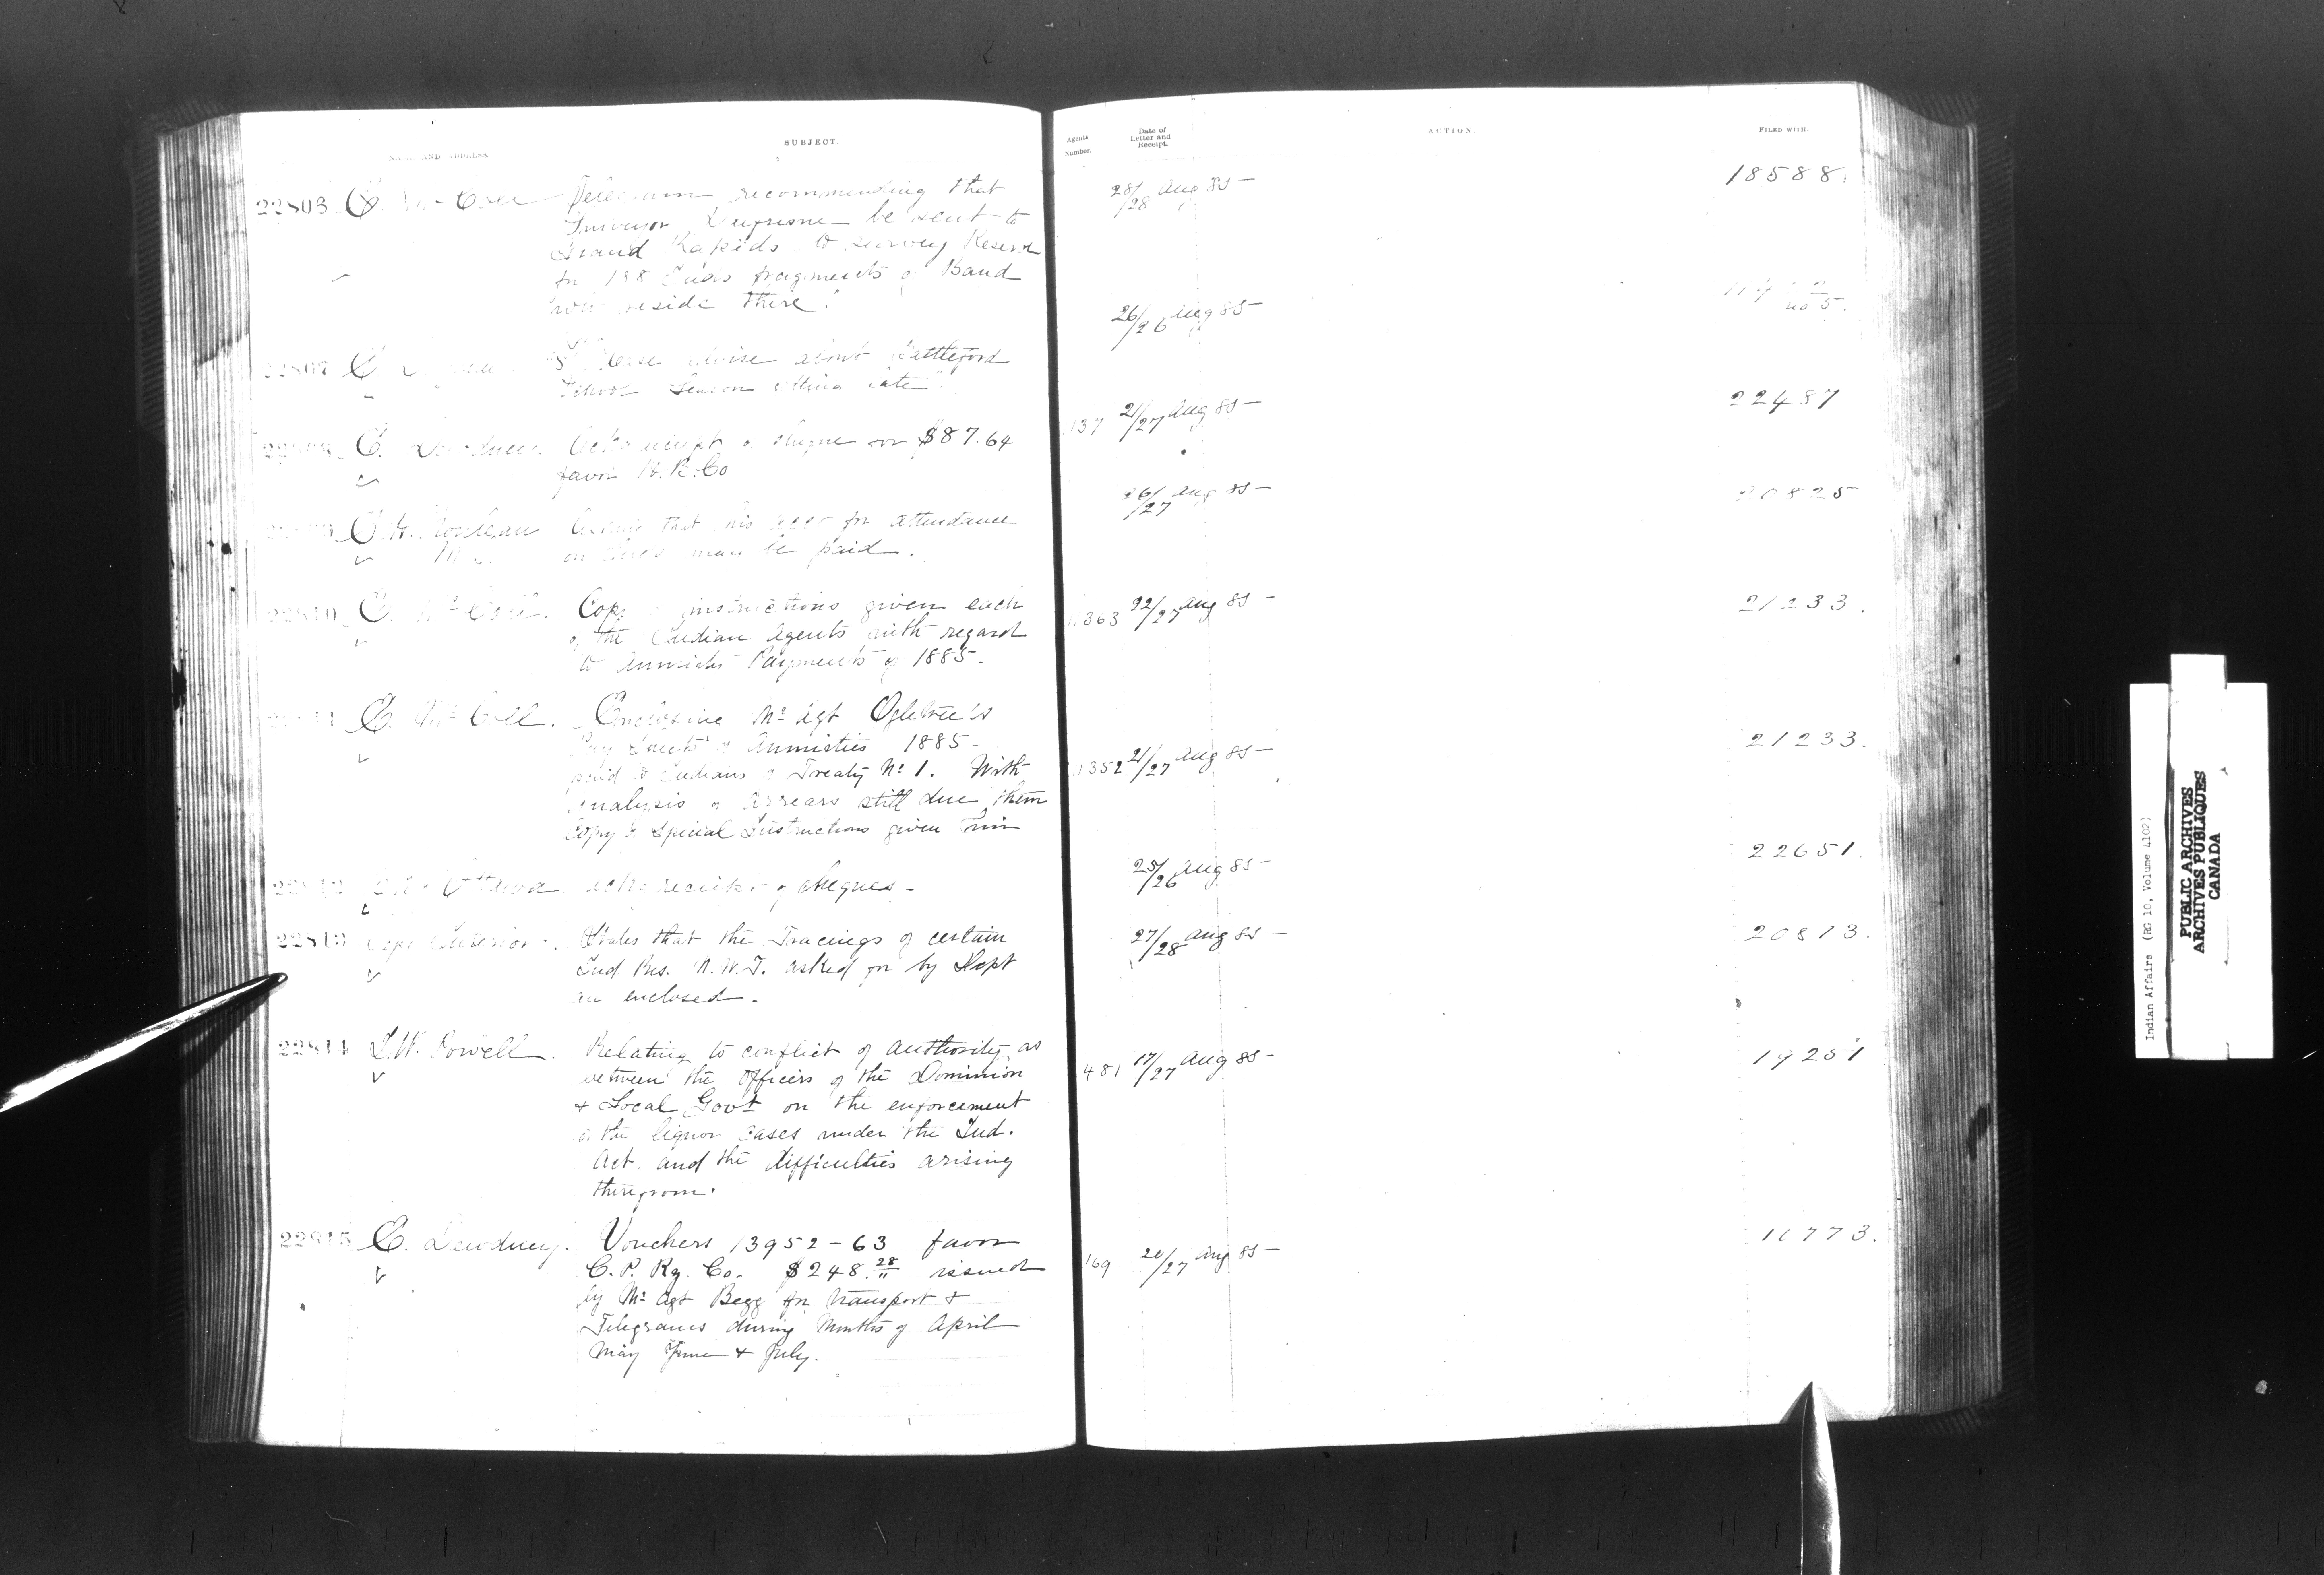 NAME AND ADDRESS
SUBJECT.
22806 E. McColl Telegram recommending that
Surveyor be sent to
Grand Rapids to survey Reserve
for 188 Inds fragments of Band
who reside there".
22807 E. "Please advise about Battleford
School Season getting late".
E. Dewdney. Ack receipt of cheque for $87.64
favor H.B.Co
that his acct for attendance
on Inds may be paid.
22810 E. McColl. Copy of instructions given each
of the Indian Agents with regard
to Annuity Payments of 1885.
E. McColl. Enclosing Mr Agt Ogletree's
Pay Sheets of Annuities 1885
paid to Indians of Treaty No 1. With
analysis of Arrears still due them
Copy of Special Instructions given him
22812 Ottawa. Ackg receipt of cheques -
22813 Dept Interior. States that the Tracings of certain
Ind. Res. N.W.T. asked for by Dept
are enclosed -
22814 I.W. Powell. Relating to conflict of authority as
between the Officers of the Dominion
& Local Govt on the enforcement
of the liquor cases under the Ind.
Act. and the difficulties arising
therefrom.
22815 E. Dewdney. Vouchers 13952-63 favor
C.P. Ry. Co. $248.28 issued
by Mr Agt Begg for transport &
Telegrams during Months of April
May June & July.
Agents Number.
Date of Letter and Receipt.
ACTION.
FILED WITH.
28/28 Aug 85 18588.
26/26 Aug 85
no 5.
137 21/27 Aug 85 22487
26/27 Aug 85 20825
363 22/27 Aug 85 21233.
1352 21/27 Aug 85 21233.
25/26 Aug 85 22651.
27/28 Aug 85 20813.
481 17/27 Aug 85 19251
169 20/27 Aug 85 11773.
Indian Affairs (RG 10, Volume 4102)
PUBLIC ARCHIVES
ARCHIVES PUBLIQUES
CANADA